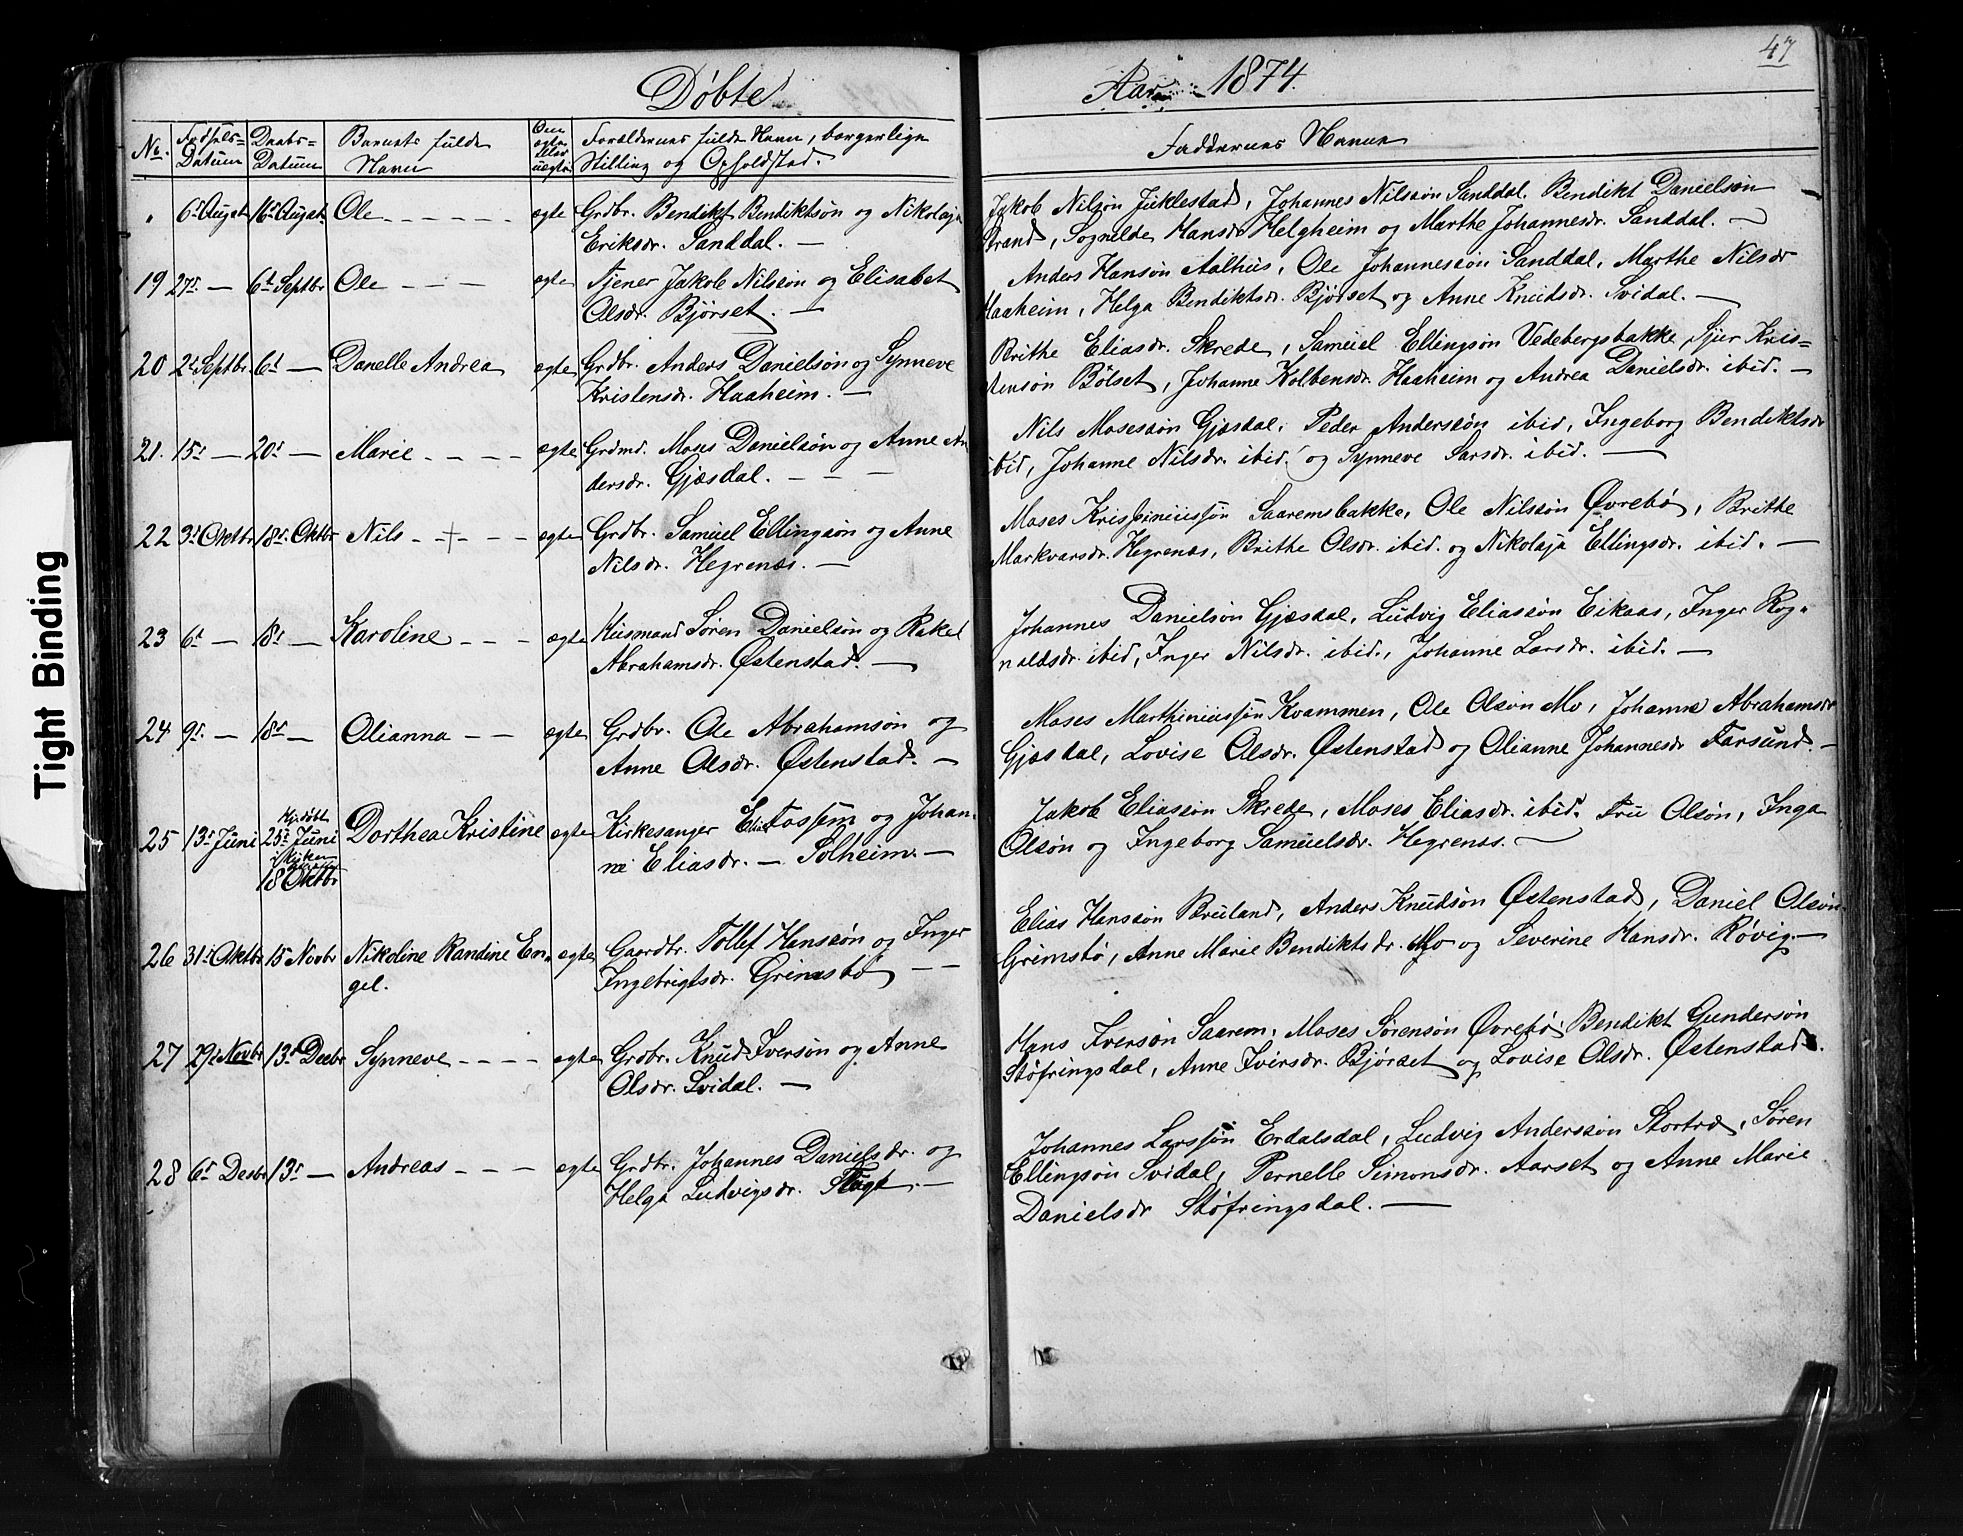 47
Døbte
Aar 1874.
No. Fødsels- Daabs- Barnets fulde Om ægte eller uægte Forældrenes fulde Navn, borgerlige
Datum Datum Navn Stilling og Opholdssted.
Faddernes Navne
6t August 16t August Ole - - - - - ægte Grdbr. Bendikt Bendiktsøn og Nikolaja
Eriksdr. Sanddal. —
Jakob Nilsøn Jüklestad, Johannes Nilssøn Sanddal, Bendikt Danielsøn
Strand, Sognelde Hansdr Helgheim og Marthe Johannesdr. Sanddal. —
19 27s. — 6t Septbr Ole - - - - ægte Tjener Jakob Nilssøn og Elisabet
Olsdr. Bjørset. —
Anders Hansøn Aalhus, Ole Johannessøn Sanddal, Marthe Nilsdr
Haaheim, Helga Bendiktsdr. Bjørset og Anne Knüdsdr. Svidal. —
20 2t Septbr. 6t — Danelle Andrea ægte Grdbr. Anders Danielsøn og Synneve
Kristensdr. Haaheim. —
Brithe Eliasdr. Skrede, Samüel Ellingsøn Vedebergsbakke, Sjur Kris=
tensøn Bolset, Johanne Kolbensdr. Haaheim og Andrea Danielsdr. ibid. —
21. 15s — 20s — Marie - - - - ægte Grdmd. Moses Danielsøn og Anne An
dersdr. Gjæsdal. - -
Nils Mosessøn Gjæsdal, Peder Anderssøn ibid, Ingeborg Bendiktsdr
ibid, Johanne Nilsdr. ibid. og Synneve Larsdr. ibid. —
22 3d Oktbr. 18s. Oktbr Nils - + - - ægte Grdbr. Samüel Ellingsøn og Anne
Nilsdr. Hegrenæs. —
Moses Krispiniüssøn Saaremsbakke, Ole Nilssøn Øvrebø, Brithe
Markvarsdr. Hegrenæs, Brithe Olsdr. ibid. og Nikolaja Ellingsdr. ibid. —
23 6t — 18s — Karoline - - - ægte Hüsmand Søren Danielsøn og Rakel
Abrahamsdr. Østenstad. —
Johannes Danielsøn Gjæsdal, Ludvig Eliassøn Eikaas, Inger Rog=
naldsdr. ibid, Inger Nilsdr. ibid., Johanne Larsdr. ibid. —
24 9s. — 18s — Olianna - - ægte Grdbr. Ole Abrahamsøn og
Anne Olsdr. Østenstad. —
Moses Marthiniüssøn Kvammen, Ole Olsøn Mo, Johanne Abrahamsdr
Gjæsdal, Lovise Olsdr. Østenstad og Olianne Johannesdr Farsund. —
25 13s Jüni Hjdøbt 25s Jüni i Kirken 18 Oktbr Dorthea Kristine ægte Kirkesanger Elias Fossem og Johan
ne Eliasdr. — Solheim. —
Jakob Eliassøn Skrede, Moses Eliasdr. ibid. Frü Olsøn, Inga
Olsøn og Ingeborg Samüelsdr. Hegrenæs. —
26 31s Oktbr. 15 Novbr Nikoline Randine En= ægte Gaardbr. Tollef Hanssøn og Inger
gel. Ingebrigtsdr. Grimstø — —
Elias Hanssøn Brüland, Anders Knüdsøn Østenstad, Daniel Olsøn
Grimstø, Anne Marie Bendiktsdr. Mo og Severine Hansdr. Røvig. —
27 29s Novbr 13s Decbr Synneve - - - - ægte Grdbr. Knüd Iversøn og Anne
Olsdr. Svidal. —
Hans Iversøn Saarem, Moses Sørensøn Øvrebø, Bendikt Gundersøn
Støfringsdal, Anne Iversdr. Bjørset og Lovise Olsdr. Østenstad.
28 6t Desbr 13s — Andreas - - - ægte Grdbr. Johannes Danielsdr. og
Helga Ludvigsdr. Flugt. —
Johannes Larssøn Erdalsdal, Ludvig Anderssøn Stortræ, Søren
Ellingsøn Svidal, Pernelle Simonsdr. Aarset og Anne Marie
Danielsdr Støfringsdal. —
Tight Binding